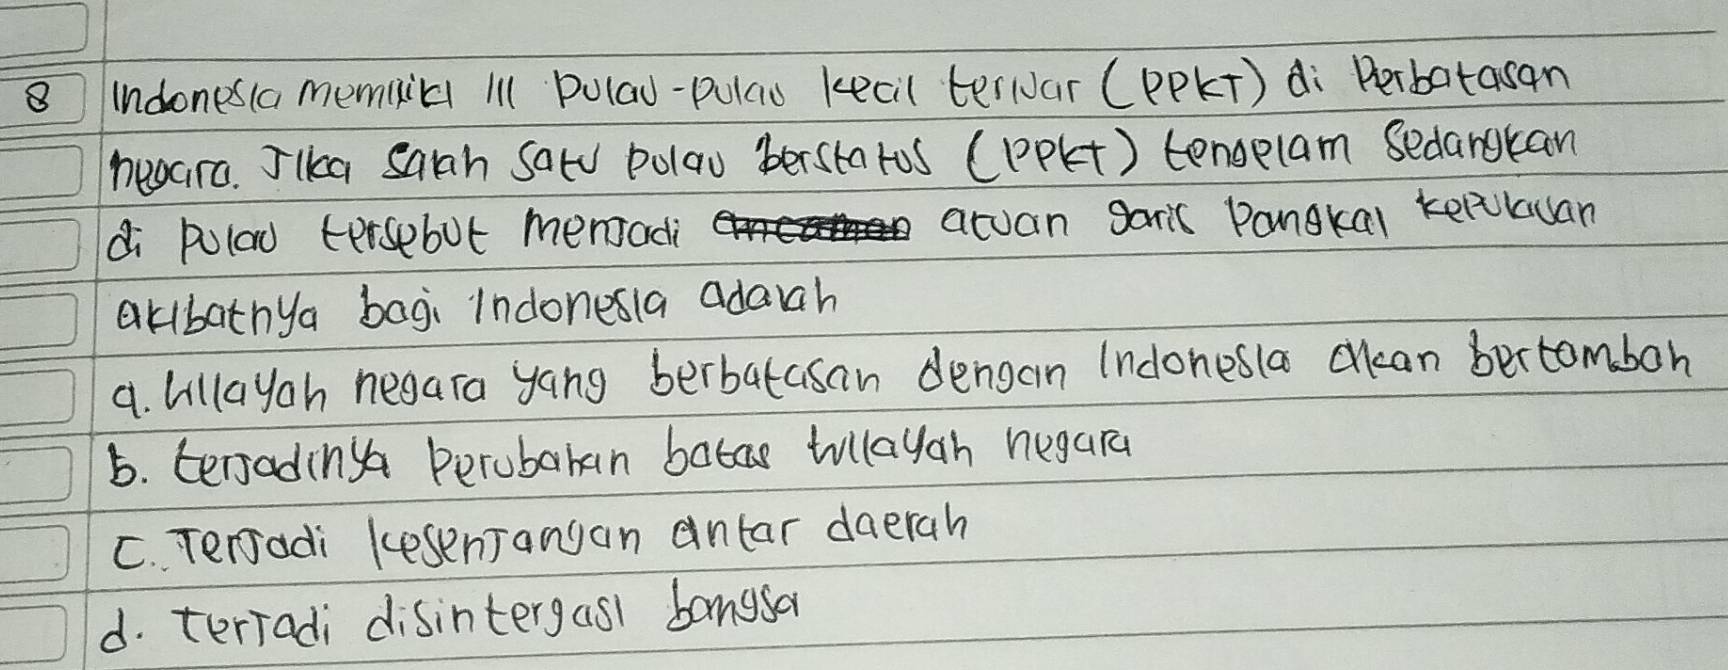 8 Indonesia memiliki 111 pulau-pulau kecil terluar (PPKT) di Perbatasan
negara. Jika salah satu pulau berstatus (PPKT) tenggelam sedangkan
di pulau tersebut menjadi acuan garis pangkal kepulauan
akibatnya bagi Indonesia adalah
a. Wilayah negara yang berbatasan dengan Indonesia akan bertambah
b. terjadinya perubahan batas wilayah negara
c. Terjadi kesenjangan antar daerah
d. terjadi disintergasi bangsa